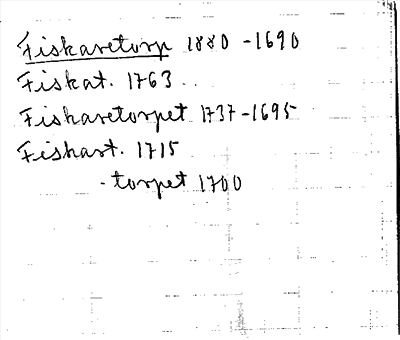 Fiskaretorp 1880-1690
Fiskat. 1763
Fiskaretorpet 1737-1695
Fiskart. 1715
-torpet 1700